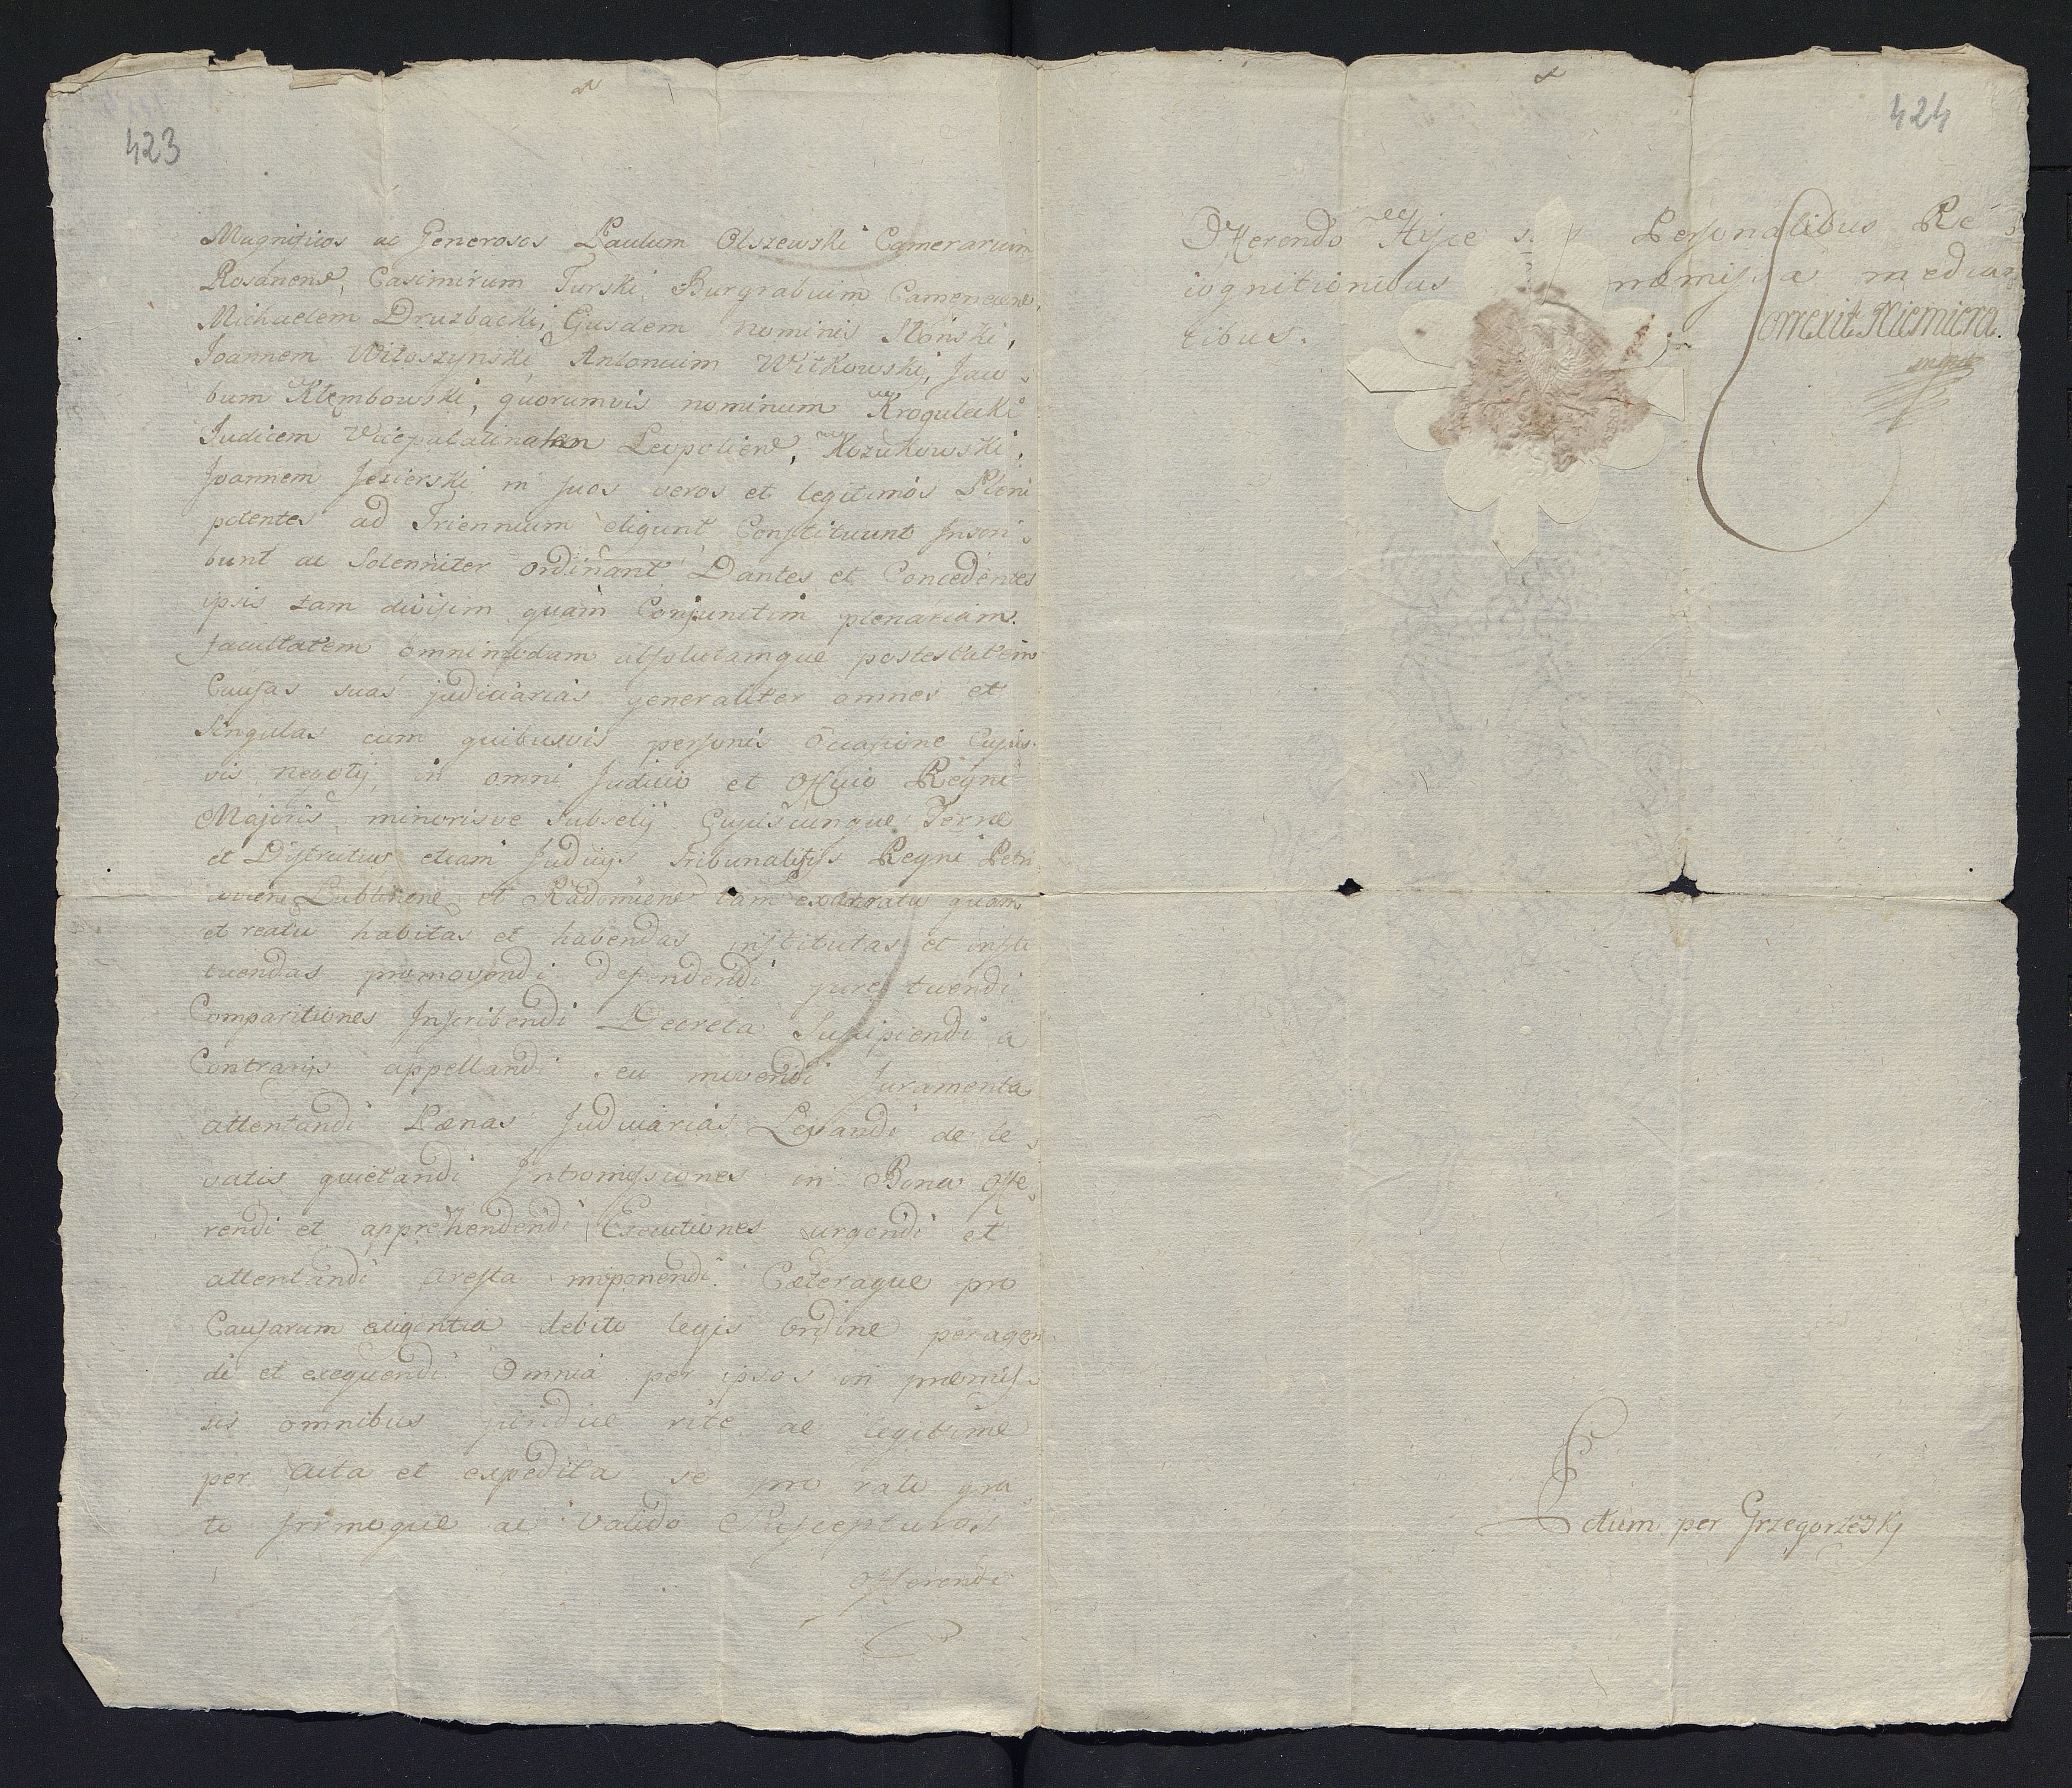 423
Magnificos ac Generosos Paulum Olszewski Camerarium
Rosanens, Casimirum Turski, Burgrabium Camenecens,
Michaelem Druzbacki, Ejusdem nominis Słonski,
Joannem Witoszynski, Antonium Witkowski, Jaco
bum Klembowski, quorumvis nominum Krogulecki
Judicem Vicepalatinalem Leopoliens, Kozukowski,
Joannem Jezierski in suos veros et legitimos Pleni
potentes ad Triennium eligunt Constituunt Inscri
bunt ac Solenniter ordinant Dantes et Concedentes
ipsis tam divisim quam Conjunctim plenariam
facultatem omnimodam absolutamque postestatem
Causas suas judiciarias generaliter omnes et
Singulas cum quibusvis personis Occasione Cujus
vis negotij in omni Judicio et Officio Regni
Majoris minorisve Subselij Cujuscunque Terrae
et Districtus etiam Judicijs Tribunalitijs Regni Petri
coviens Lublinens et Radomiens tam ex actoratu quam
et reatu habitas et habendas institutas et insti
tuendas promovendi defendendi jure tuendi
Comparitiones Inscribendi Decreta Suscipiendi a
Contrarijs appellandi seu movendi Juramenta
attentandi Pænas Judiciarias Levandi de le
vatis quietandi Intromissiones in Bona offe
rendi et apprehendendi Executiones urgendi et
attentandi aresta imponendi. Cæteraque pro
Causarum exigentia debito legis Ordine peragen
di et exequendi Omnia per ipsos in præmis
sis omnibus juridice rite ac legitime
per Acta et expedita se pro rato gra
to firmoque ac valido Suscepturos
Offerendi
424
Offerendo Hisce Personalibus Re
cognitionibus præmissa median
tibus.
Correxit Niemiera
Lectum per Grzegorzeskj